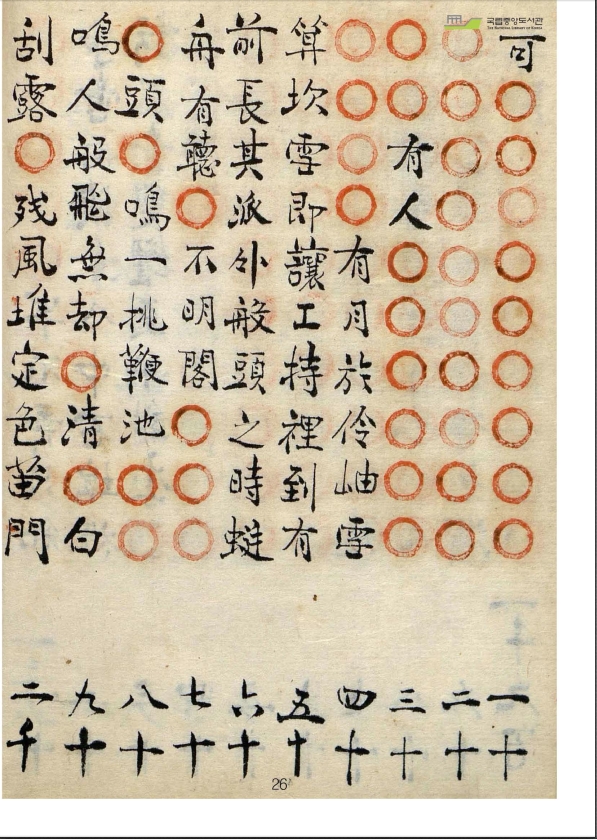 국립중앙도서관
THE NATIONAL LIBRARY OF KOREA
可
一十
二十
有人
三十
有月於伶岫雪
四十
算坎雪即讓工持裡到有
五十
前長其派外般頭之時蜓
六十
舟有聽○不明閣○○○
七十
○頭○鳴一挑鞭池○○
八十
鳴人般飛無却○清○白
九十
刮露○残風堆定色苗門
二千
26